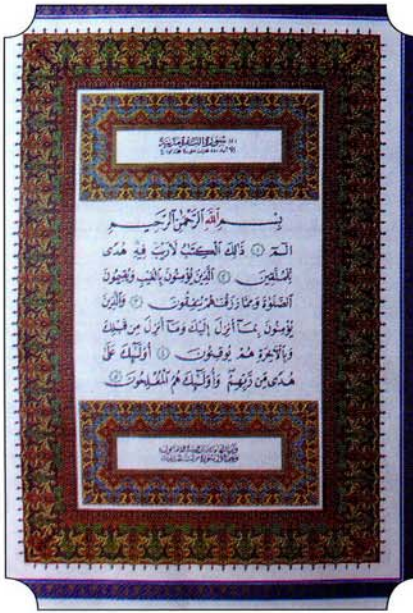 سورة البقرة مدنية
بِسْمِ اللَّهِ الرَّحْمَٰنِ الرَّحِيمِ
الٓمٓ ١ ذَٰلِكَ الْكِتَٰبُ لَا رَيْبَ فِيهِ هُدًى
لِلْمُتَّقِينَ ٢ الَّذِينَ يُؤْمِنُونَ بِالْغَيْبِ وَيُقِيمُونَ
الصَّلَوٰةَ وَمِمَّا رَزَقْنَٰهُمْ يُنفِقُونَ ٣ وَالَّذِينَ
يُؤْمِنُونَ بِمَآ أُنزِلَ إِلَيْكَ وَمَآ أُنزِلَ مِن قَبْلِكَ
وَبِالْءَاخِرَةِ هُمْ يُوقِنُونَ ٤ أُولَٰٓئِكَ عَلَىٰ
هُدًى مِّن رَّبِّهِمْ وَأُولَٰٓئِكَ هُمُ الْمُفْلِحُونَ ٥